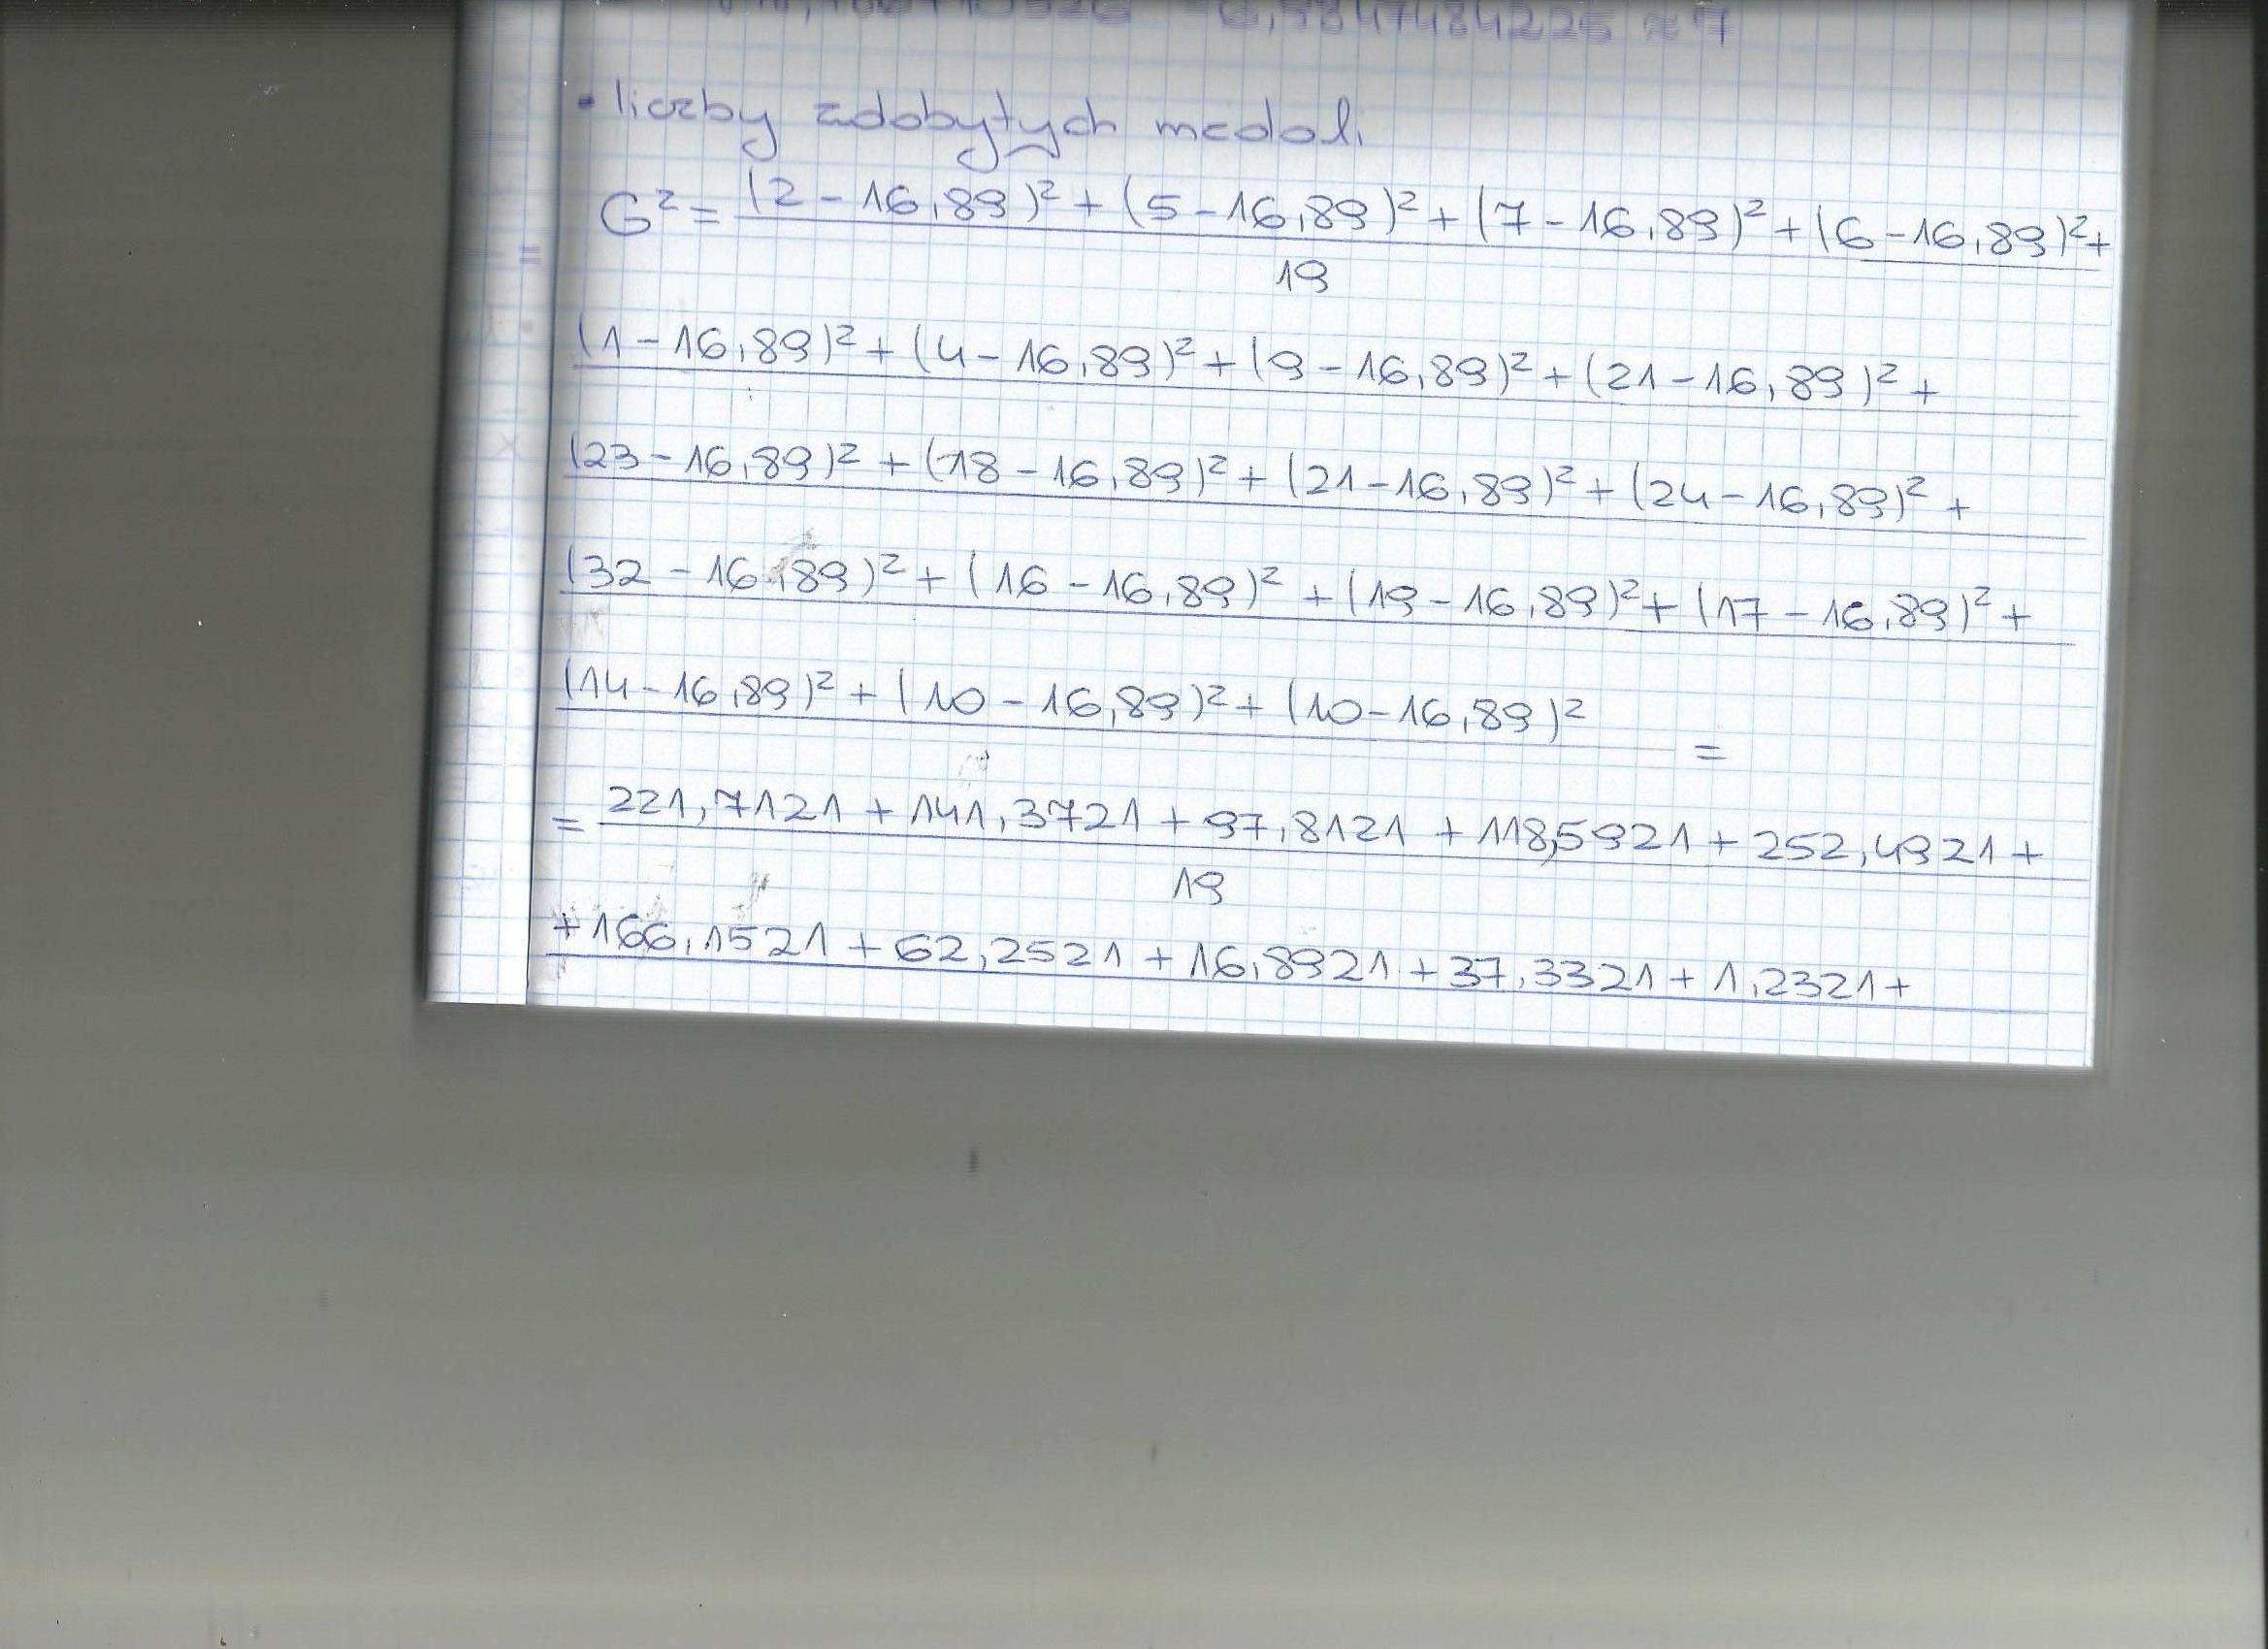 6,5847484225 ≈ 7
• liczby zdobytych medali
G² = (2 - 16,89)² + (5 - 16,89)² + (7 - 16,89)² + (6 - 16,89)² +
19
(1 - 16,89)² + (4 - 16,89)² + (9 - 16,89)² + (21 - 16,89)² +
(23 - 16,89)² + (18 - 16,89)² + (21 - 16,89)² + (24 - 16,89)² +
(32 - 16,89)² + (16 - 16,89)² + (19 - 16,89)² + (17 - 16,89)² +
(14 - 16,89)² + (10 - 16,89)² + (10 - 16,89)² =
= 221,7121 + 141,3721 + 97,8121 + 118,5921 + 252,4921 +
19
+ 166,1521 + 62,2521 + 16,8921 + 37,3321 + 1,2321 +